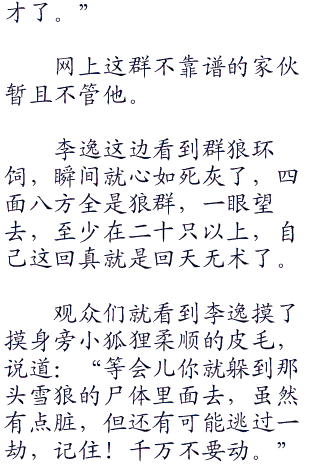 才了。”
网上这群不靠谱的家伙
暂且不管他。
李逸这边看到群狼环
饲，瞬间就心如死灰了，四
面八方全是狼群，一眼望
去，至少在二十只以上，自
己这回真就是回天无术了。
观众们就看到李逸摸了
摸身旁小狐狸柔顺的皮毛，
说道：“等会儿你就躲到那
头雪狼的尸体里面去，虽然
有点脏，但还有可能逃过一
劫，记住！千万不要动。”